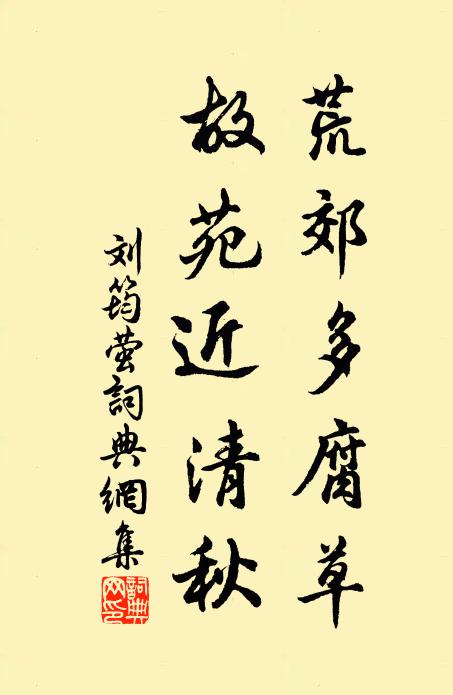 荒郊多腐草
故苑近清秋
刘筠萤詞典網集
詞典网印